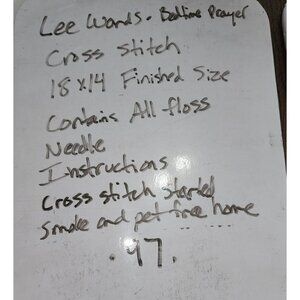 Lee Wards - Bedtime Prayer
Cross Stitch
18 x 14 Finished Size
Contains All floss
Needle
Instructions
Cross stitch started
Smoke and pet free home
.97.